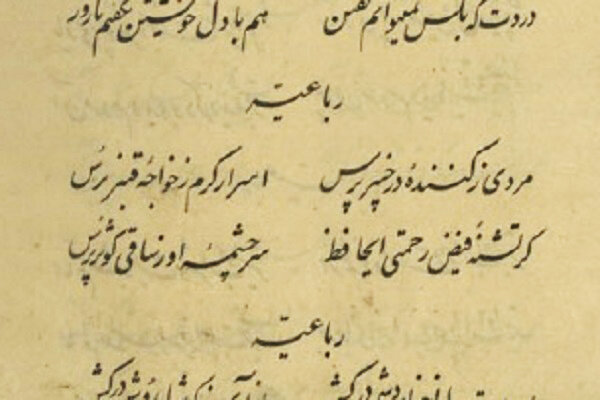 دردت که بکس نمیتوانم گفتن هم با دل خویشتن بگفتم یاور
رباعیه
مردی ز کنندهٔ در خیبر پرس اسرار کرم ز خواجهٔ قنبر پرس
کر تشنهٔ فیض رحمتی ایحافظ سرچشمهٔ او ز ساقی کوثر پرس
رباعیه